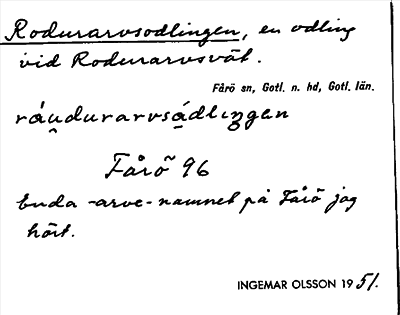 Rodurarvsodlingen, en odling
vid Rodurarvsvät.
Fårö sn, Gotl. n. hd, Gotl. län.
ráu̯durarvså̱dlıŋgen
Fårö 96
Enda -arve-namnet på Fårö jag
hört.
INGEMAR OLSSON 1951.